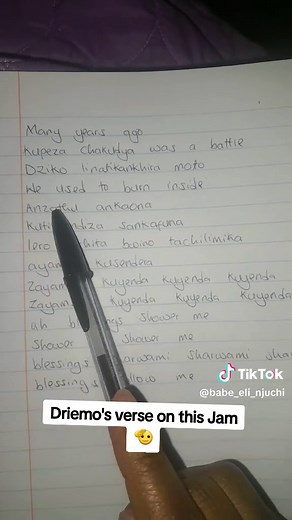 Many years ago
Kupeza chakudya was a battle
Dziko linatikankhira moto
We used to burn inside
ankaona
Kuti sankafuna
lero bwino tachilimika
kusendera
Kuyenda Kuyenda Kuyenda
Kuyenda Kuyenda Kuyenda
uh shower me
Shower shower me
blessings sharwami
blessings me
TikTok
@babe_eli_njuchi
Driemo's verse on this Jam